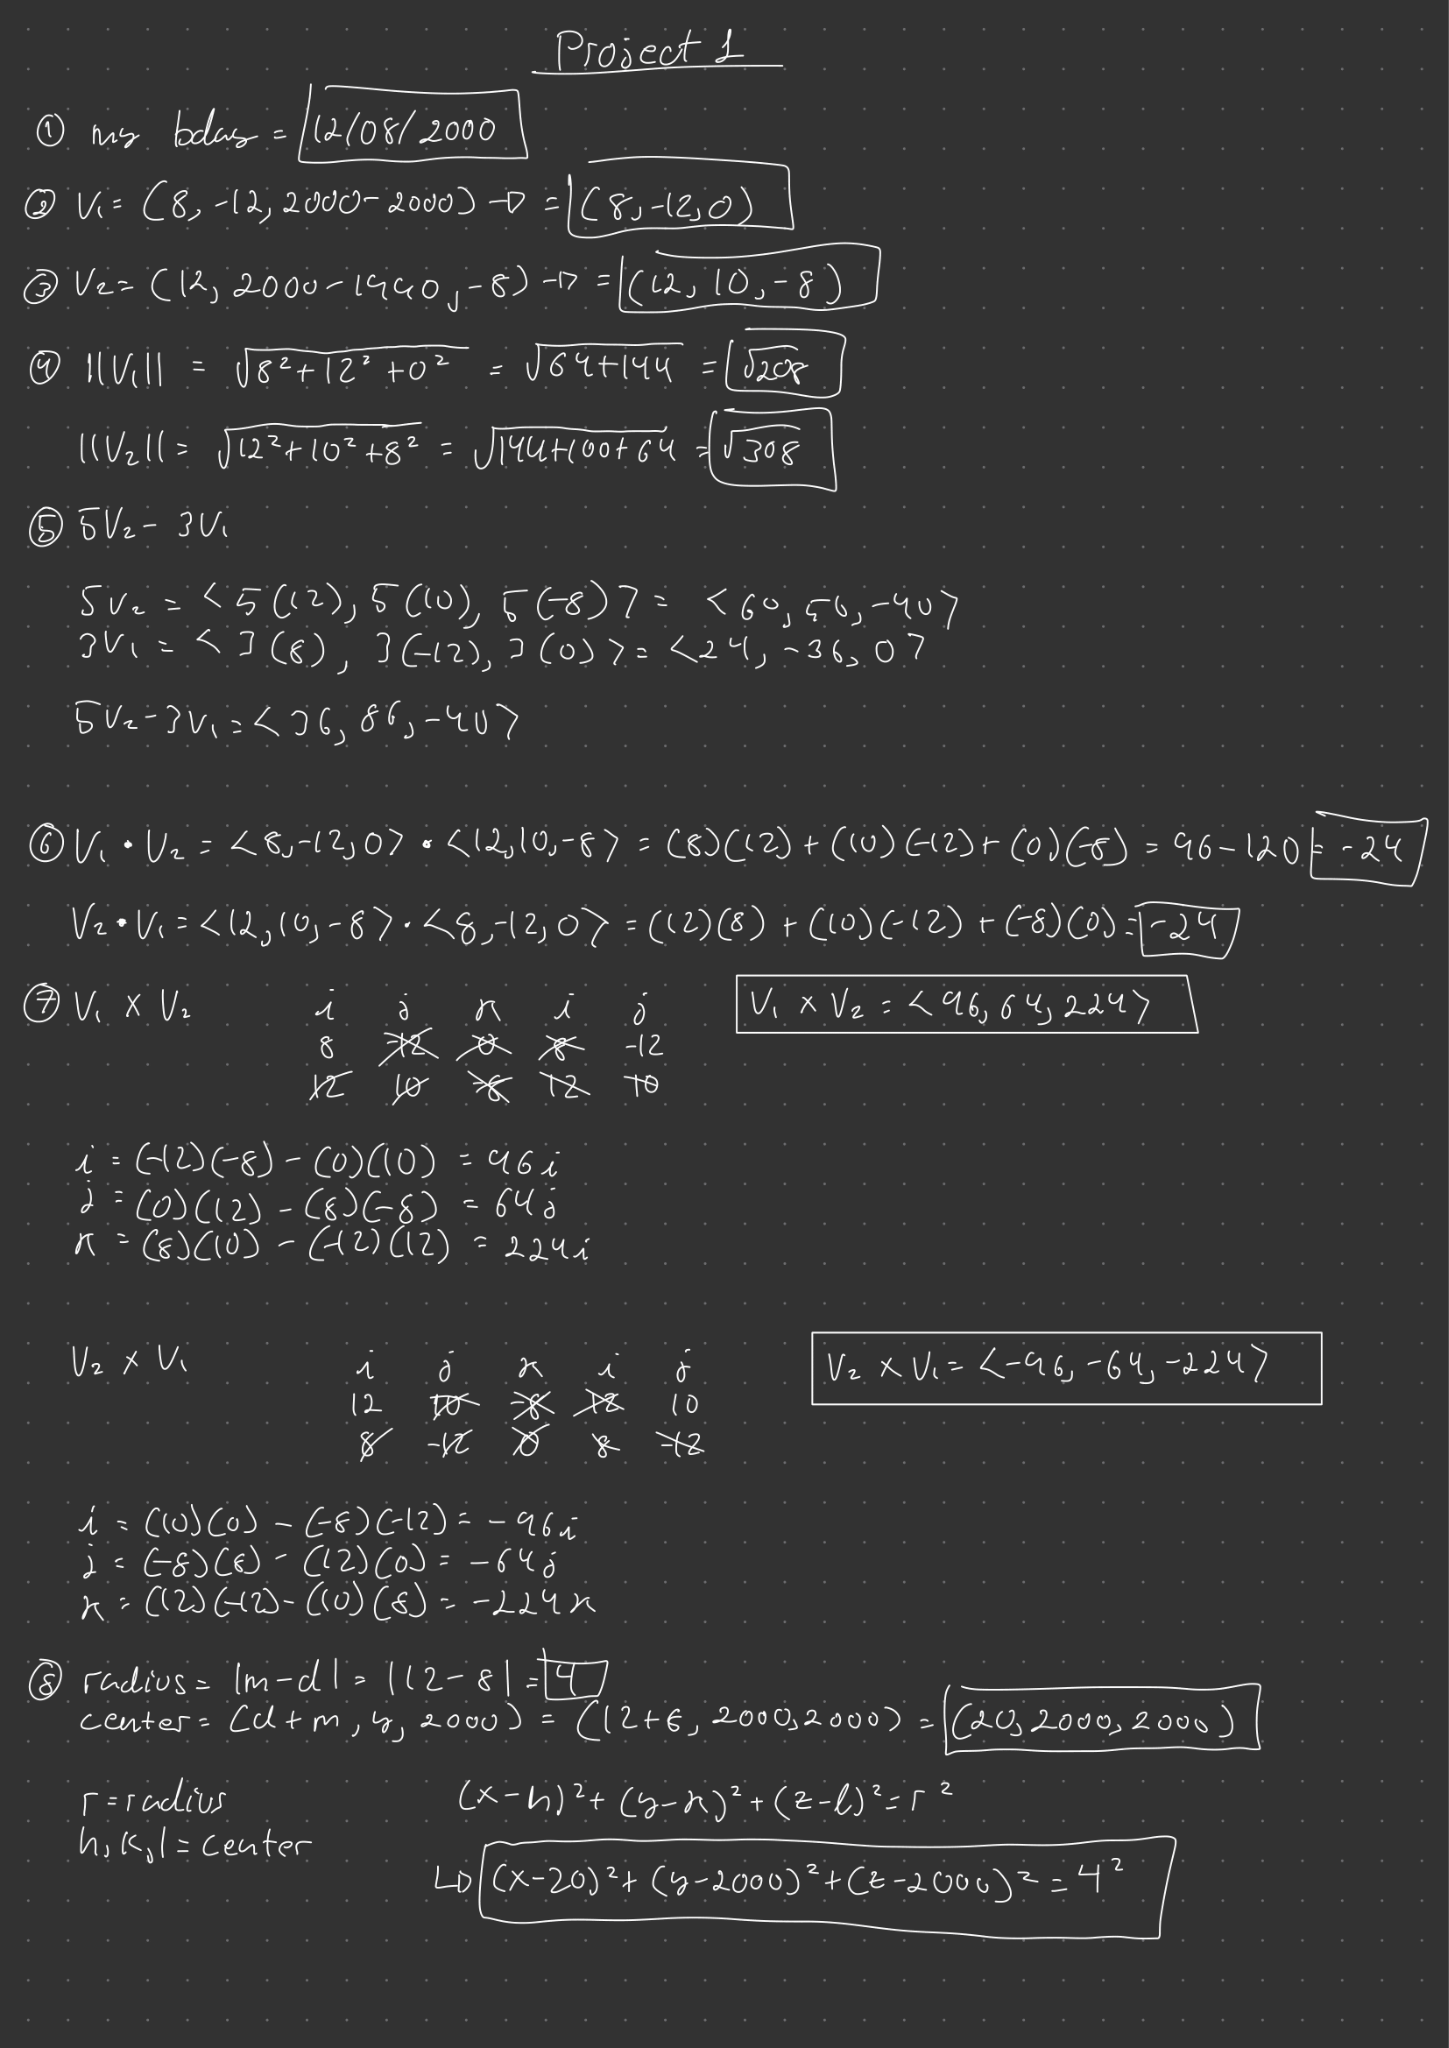 Project 1
① my bday = 12/08/2000
② V₁ = (8, -12, 2000-2000) → = (8, -12, 0)
③ V₂ = (12, 2000-1990, -8) → = (12, 10, -8)
④ ||V₁|| = √8²+12²+0² = √64+144 = √208
||V₂|| = √12²+10²+8² = √144+100+64 = √308
⑤ 5V₂ - 3V₁
5V₂ = <5(12), 5(10), 5(-8)> = <60, 50, -40>
3V₁ = <3(8), 3(-12), 3(0)> = <24, -36, 0>
5V₂-3V₁ = <36, 86, -40>
⑥ V₁ • V₂ = <8,-12,0> • <12,10,-8> = (8)(12) + (10)(-12) + (0)(-8) = 96-120 = -24
V₂ • V₁ = <12,10,-8> • <8,-12,0> = (12)(8) + (10)(-12) + (-8)(0) = -24
⑦ V₁ x V₂ i j k i j V₁ x V₂ = <96, 64, 224>
8 -12 0 8 -12
12 10 -8 12 10
i = (-12)(-8) - (0)(10) = 96i
j = (0)(12) - (8)(-8) = 64j
k = (8)(10) - (-12)(12) = 224i
V₂ x V₁ i j k i j V₂ x V₁ = <-96, -64, -224>
12 10 -8 12 10
8 -12 0 8 -12
i = (10)(0) - (-8)(-12) = -96i
j = (-8)(8) - (12)(0) = -64j
k = (12)(-12) - (10)(8) = -224k
⑧ radius = |m-d| = |12-8| = 4
center = (d+m, y, 2000) = (12+8, 2000, 2000) = (20, 2000, 2000)
r = radius (x-h)² + (y-k)² + (z-l)² = r²
h, k, l = center
↳ (x-20)² + (y-2000)² + (z-2000)² = 4²